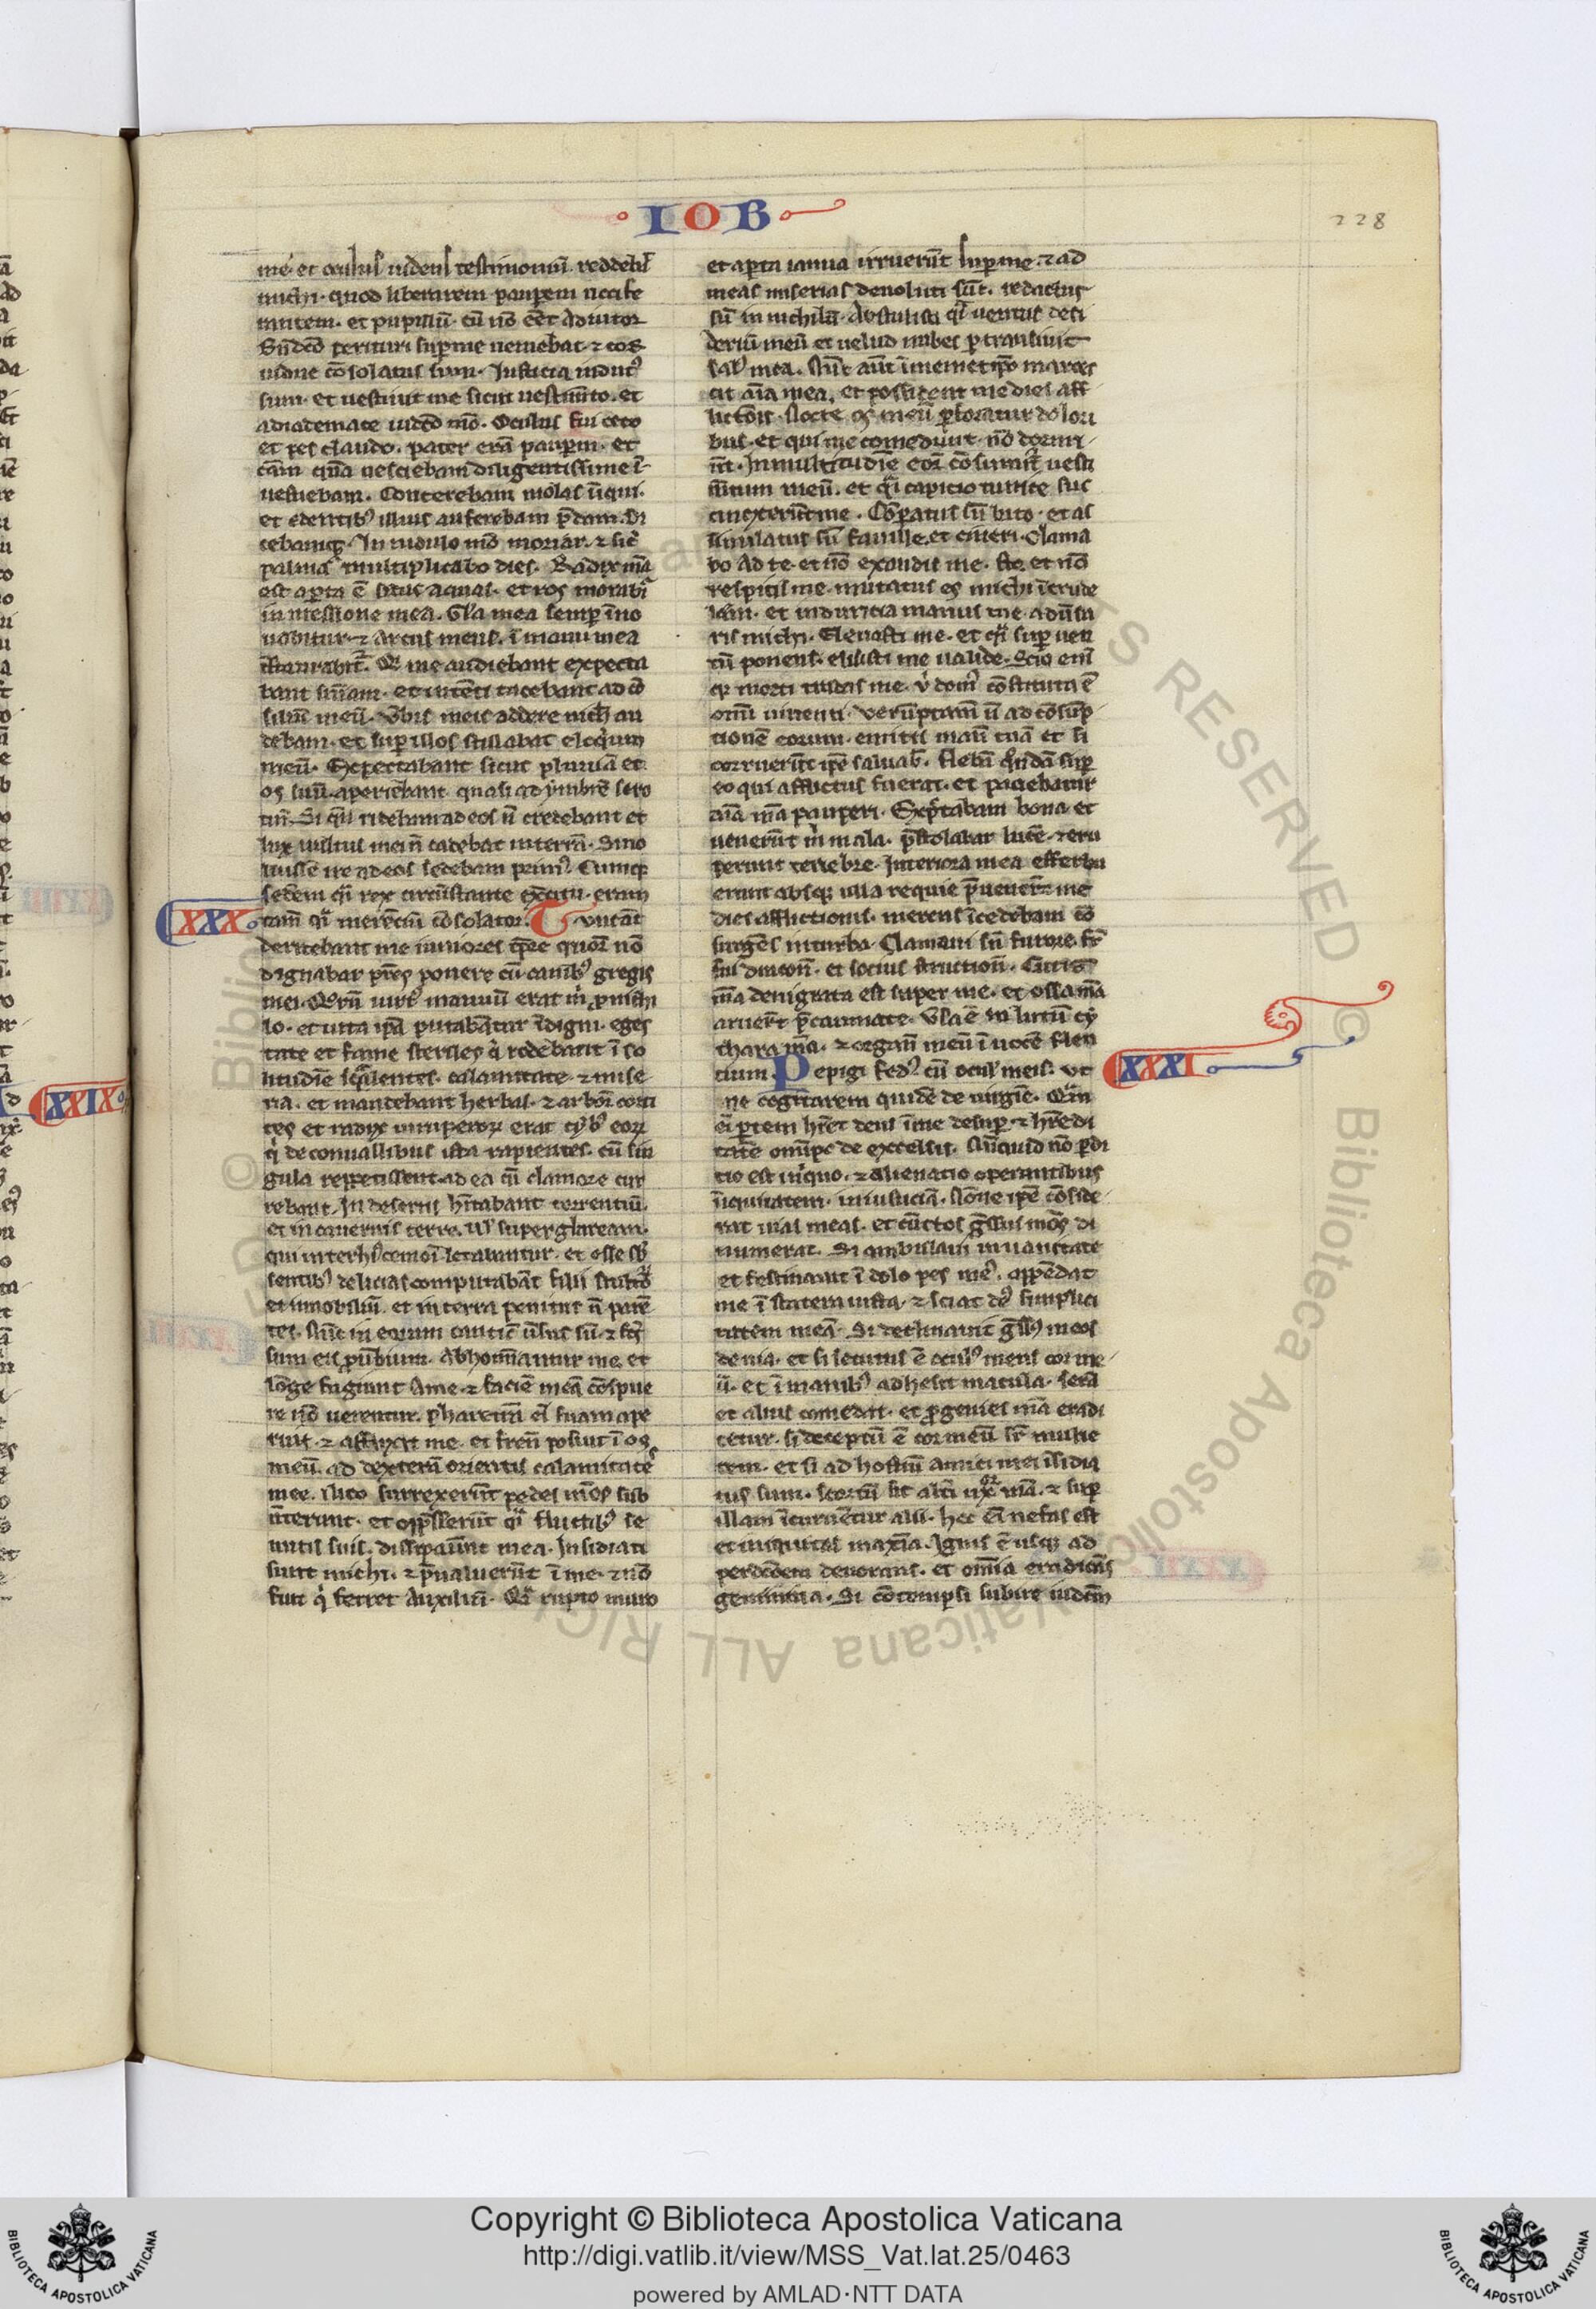 IOB
228
me. et oculus uidens testimoniũ reddebat
michi. quod liberarem pauperem uocife
rantem. et pupillũ. cũ nõ eẽt adiutor
Bñdictio perituri sup me ueniebat. ⁊ cor
uidue cõsolatus sum. Iusticia indutꝰ
sum. et uestiui me sicut uestimẽto. et
diademate iudicio meo. Oculus fui ceco
et pes claudo. pater erã pauperũ. et
cãm quã nesciebam diligentissime ĩ
uestigabam. Conterebam molas iniqui.
et dentibꝰ illius auferebam p̃dam. Di
cebamqꝫ. In nidulo meo moriar. ⁊ sic̃
palma multiplicabo dies. Radix mea
est aperta ẽ secus aquas. et ros morabit̃
in messione mea. Gl̃a mea semp ĩno
uabitur. ⁊ arcus meus. ĩ manu mea
ĩstaurabit̃. Qui me audiebant expecta
bant sñiam. et intẽti tacebant ad cõ
siliũ meũ. Verbis meis addere nichil au
debant. et sup illos stillabat eloquium
meũ. Expectabant sicut pluuiã et
os suũ aperiebant quasi ad ymbrẽ sero
tinũ. Si quando ridebam ad eos ñ credebant et
lux uultus mei ñ cadebat in terrã. Si uo
luissẽ ire ad eos sedebam primꝰ. Cumqꝫ
sederem quasi rex circũstante exercitu. eram
XXX
tam̃ merentiũ cõsolator. Nunc aut̃
deridebant me iuniores tempore quoꝝ nõ
dignabar patres ponere cũ canibꝰ gregis
mei. Quoꝝ uirtꝰ manuũ erat michi p nichi
lo. et uita ipã putabãtur ĩdigni. eges
tate et fame steriles qui rodebant ĩ so
litudine squalentes. calamitate. ⁊ mise
ria. et mandebant herbas. ⁊ arboꝝ corti
ces et radix iuniperoꝝ erat cybꝰ eoꝝ
qui de conuallibus ista rapientes. cũ sin
gula reperissent. ad ea cũ clamore cur
rebant. In desertis habitabant torrentiũ.
et in cauernis terre. uel super glaream.
qui inter huiuscemodi letabantur. et esse sub
sentibꝰ delicias computabãt filii stultoꝝ
et innobiliũ. et in terra penitus ñ parẽ
tes. Nũc in eorum canticũ uersus sũ. ⁊ factꝰ
sum eis puerbium. Abhominantur me. et
lõge fugiunt a me. ⁊ faciẽ meã cõspue
re nõ uerentur. pharetrã eĩ suam ape
ruit. ⁊ afflixit me. et frenũ posuit ĩ os
meũ. ad dexterã orientis calamitates
mee. ilico surrexerũt pedes meos sub
uerterunt. et oppresserũt quasi fluctibꝰ se
mitis suis. dissipauerunt mea. Insidiati
sunt michi. ⁊ p̃ualuerũt ĩ me. ⁊ nõ
fuit qui ferret auxiliũ. Quasi rupto muro
et aperta ianua irruerũt sup me. ⁊ ad
meas miserias deuoluti sũt. redactus
sũ in nichilũ. Abstulisti quasi uentus desi
deriũ meũ et uelud nubes ptransiuit
salus mea. Nũc aut̃ ĩ memetipso marces
cit aĩa mea. et possident me dies aff
lictionis. Nocte os meũ pforatur dolori
bus. et qui me comedũt. nõ dormi
ũt. In multitudine eoꝝ cõsumit̃ uesti
mẽtum meũ. et quasi capicio tunice suc
cinxerũt me. Cõparatus sũ luto. et as
similatus sũ fauille. et cineri. Clama
bo ad te. et nõ exaudis me. sto. et nõ
respicis me. mutatus es michi ĩ crude
lem. et in duricia manus tue. aduersa
ris michi. Eleuasti me. et quasi super uen
tũ ponens. elisisti me ualide. Scio enĩ
qꝫ morti trades me. ubi domus cõstituta ẽ
omni uiuenti. Verũptamẽ ñ ad cõsũp
tionẽ eorum. emittis manũ tuã et si
corruerũt ipse saluabis. Flebã quondã sup
eo qui afflictus fuerat. et paciebatur
aĩa mea pauperi. Expectabam bona et
uenerũt michi mala. p̃stolabar lucẽ. ⁊ eru
perunt tenebre. Interiora mea efferbu
erunt absqꝫ ulla requie p̃uenerũt me
dies afflictionis. merens ĩcedebam cõ
surgẽs in turba. Clamaui sine furore. frater
fui draconũ. et socius structionũ. Cutis
mea denigrata est super me. et ossa mea
aruerũt p̃ caumate. Versa ẽ in luctũ cy
thara mea. ⁊ organũ meũ ĩ uocẽ flen
tium. Pepigi fedꝰ cũ oculis meis. ut
XXXI
ne cogitarem quidẽ de uirgine. Quam
eĩ partem haberet deus ĩ me desuper. ⁊ heredi
tatẽ omnipotens de excelsis. Nũquid nõ perdi
tio est iniquo. ⁊ alienatio operantibus
iniquitatem. iniusticiã. Nõne ipse cõside
rat uias meas. et cũctos gressus meos di
numerat. Si ambulaui in uanitate
et festinauit ĩ dolo pes meꝰ. appẽdat
me ĩ statera iusta. ⁊ sciat deꝰ simplici
tatem meã. Si declinauit gressus meos
de uia. et si secutus ẽ oculꝰ meus cor me
ũ. et ĩ manibꝰ adhesit macula. serã
et alius comedat. et progenies mea eradi
cetur. si deceptũ ẽ cor meũ super mulie
rem. et si ad hostiũ amici mei ĩsidia
tus sum. scortũ sit alteri uxor mea. ⁊ sup
illam ĩcuruẽtur alii. hec eĩ nefas est
et iniquitas maxĩa. Ignis ẽ usqꝫ ad
perdicionem deuorans. et omnia eradicans
genimina. Si cõtempsi subire iudicium
XXIX
Copyright © Biblioteca Apostolica Vaticana
http://digi.vatlib.it/view/MSS_Vat.lat.25/0463
powered by AMLAD·NTT DATA
BIBLIOTECA APOSTOLICA VATICANA
BIBLIOTECA APOSTOLICA VATICANA